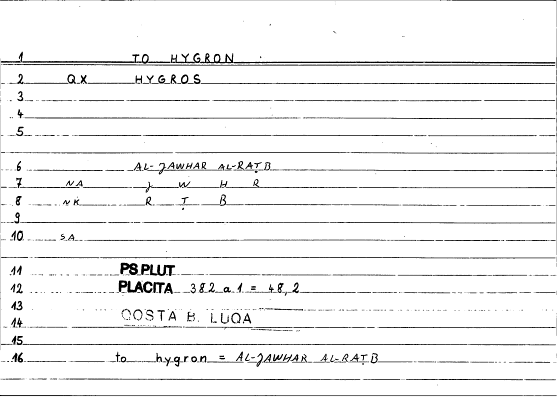 1 TO HYGRON
2 QX HYGROS
3
4
5
6 AL-JAWHAR AL-RAṬB
7 NA J W H R
8 NK R Ṭ B
9
10 SA
11 PS PLUT
12 PLACITA 382 a 1 = 48,2
13
14 QOSTA B. LUQA
15
16 to hygron = AL-JAWHAR AL-RAṬB